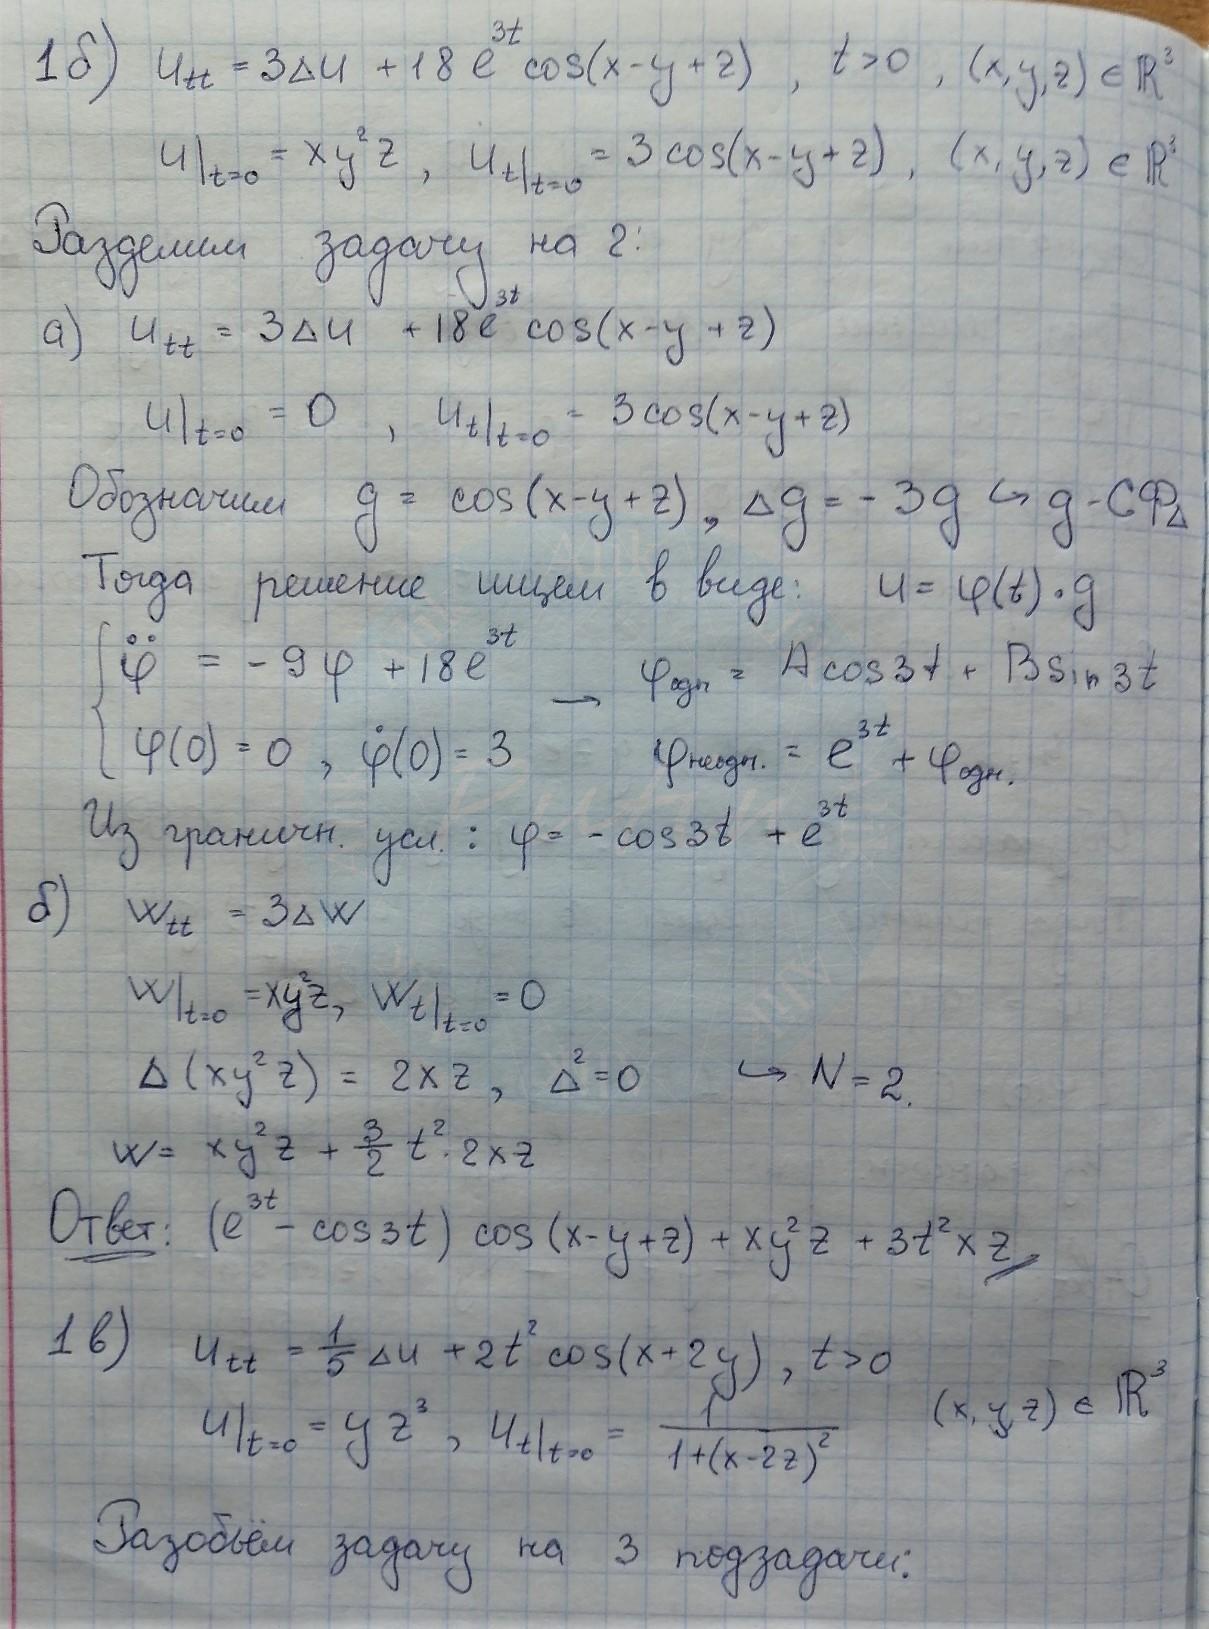 1б) u_tt = 3Δu + 18e^{3t} cos(x-y+z), t>0, (x,y,z) ∈ ℝ³
u|_{t=0} = xy²z, u_t|_{t=0} = 3cos(x-y+z), (x,y,z) ∈ ℝ³
Разделим задачу на 2:
а) u_tt = 3Δu + 18e^{3t} cos(x-y+z)
u|_{t=0} = 0, u_t|_{t=0} = 3cos(x-y+z)
Обозначим g = cos(x-y+z), Δg = -3g ↪ g-СФ_Δ
Тогда решение ищем в виде: u = φ(t)·g
{ φ̈ = -9φ + 18e^{3t} → φ_одн = A cos3t + B sin3t
φ(0) = 0, φ̇(0) = 3 φ_неодн. = e^{3t} + φ_одн.
Из граничн. усл.: φ = -cos3t + e^{3t}
б) w_tt = 3Δw
w|_{t=0} = xy²z, w_t|_{t=0} = 0
Δ(xy²z) = 2xz, Δ² = 0 ↪ N = 2.
w = xy²z + 3/2 t²·2xz
Ответ: (e^{3t} - cos3t) cos(x-y+z) + xy²z + 3t²xz
1в) u_tt = 1/5 Δu + 2t² cos(x+2y), t>0
u|_{t=0} = yz³, u_t|_{t=0} = 1/(1+(x-2z)²) (x,y,z) ∈ ℝ³
Разобьём задачу на 3 подзадачи: